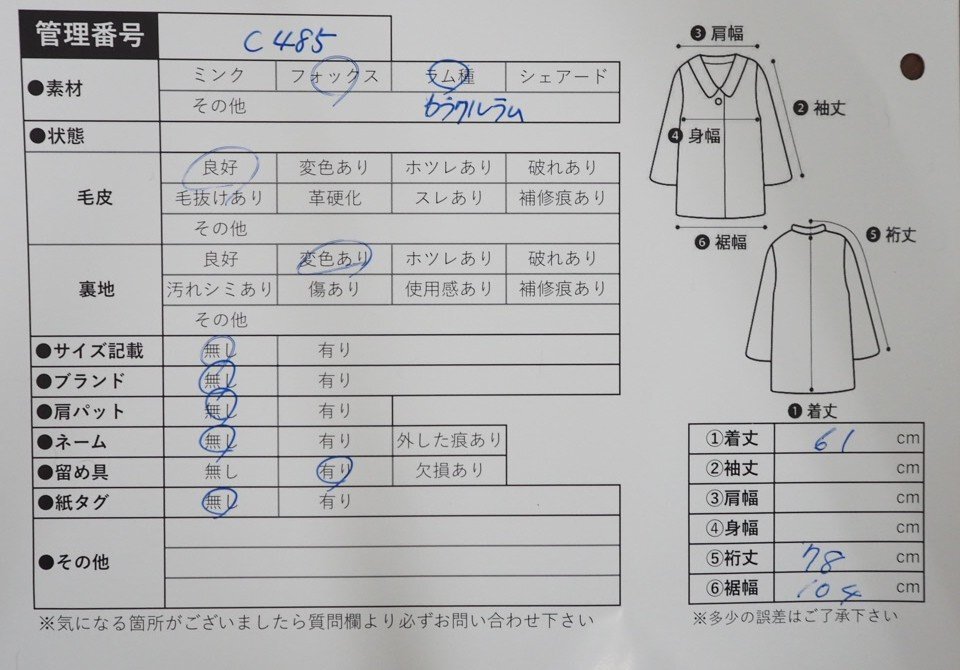 管理番号 C485
●素材 ミンク フォックス ラム種 シェアード
その他 カラクルラム
●状態
毛皮 良好 変色あり ホツレあり 破れあり
毛抜けあり 革硬化 スレあり 補修痕あり
その他
裏地 良好 変色あり ホツレあり 破れあり
汚れシミあり 傷あり 使用感あり 補修痕あり
その他
●サイズ記載 無し 有り
●ブランド 無し 有り
●肩パット 無し 有り
●ネーム 無し 有り 外した痕あり
●留め具 無し 有り 欠損あり
●紙タグ 無し 有り
●その他
※気になる箇所がございましたら質問欄より必ずお問い合わせ下さい
❸肩幅
❷袖丈
❹身幅
❻裾幅
❺裄丈
❶着丈
①着丈 61 cm
②袖丈 cm
③肩幅 cm
④身幅 cm
⑤裄丈 78 cm
⑥裾幅 104 cm
※多少の誤差はご了承下さい